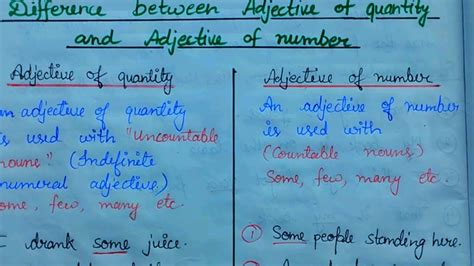 Difference between Adjective of quantity
and Adjective of number
Adjective of quantity
an adjective of quantity
is used with "Uncountable
nouns" (Indefinite
numeral adjective.)
Some, few, many etc.
drank some juice.
Adjective of number
An adjective of number
is used with
(Countable nouns.)
Some, few, many etc.
① Some people standing here.